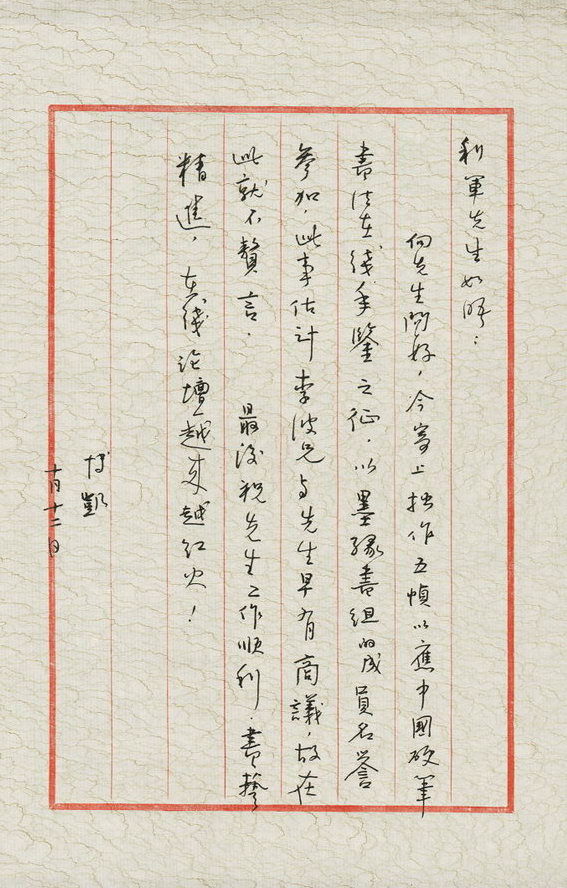 利軍先生如晤：
向先生問好，今寄上拙作五幀以應中國硬筆
書法在线手鑒之征，以墨缘書组的成員名誉
參加，此事估计李波兄与先生早有商議，故在
此就不贅言。最後祝先生工作顺利，書藝
精進，在线论壇越来越红火！
博凱
十月十二日